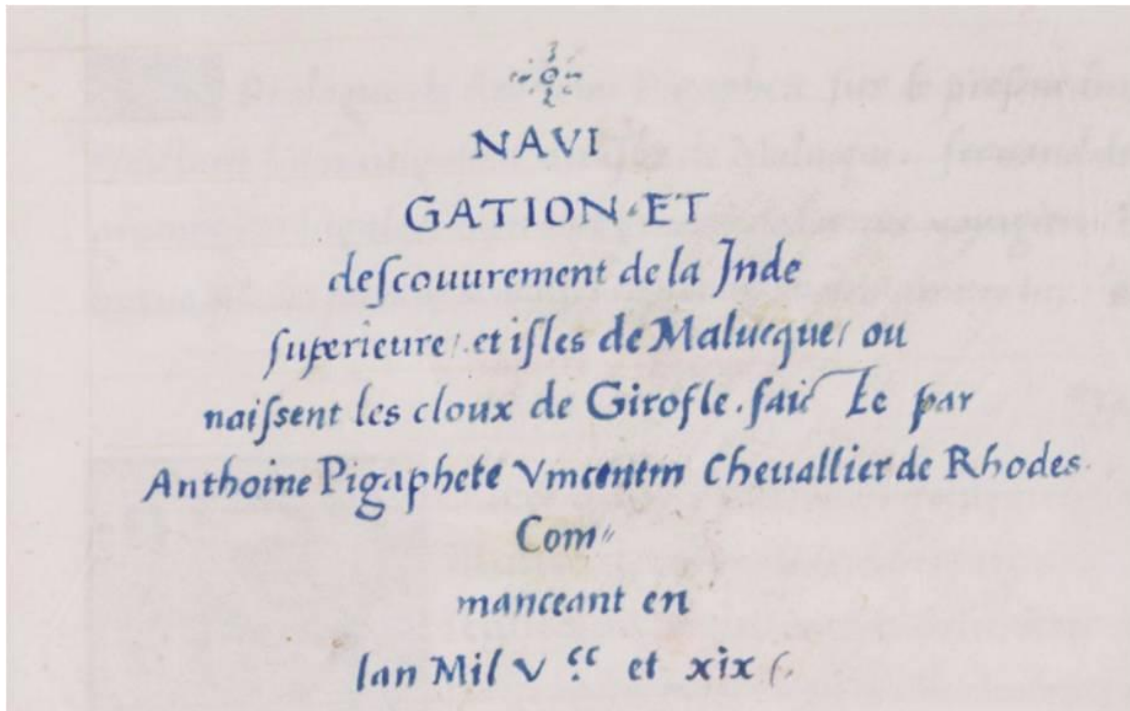 NAVI
GATION·ET
deſcouurement de la Inde
ſuperieure/. et iſles de Malucque/ ou
naiſſent les cloux de Girofle. faicte par
Anthoine Pigaphete Vincentin Cheuallier de Rhodes.
Com〃
manceant en
lan Mil V ᶜᶜ et xix